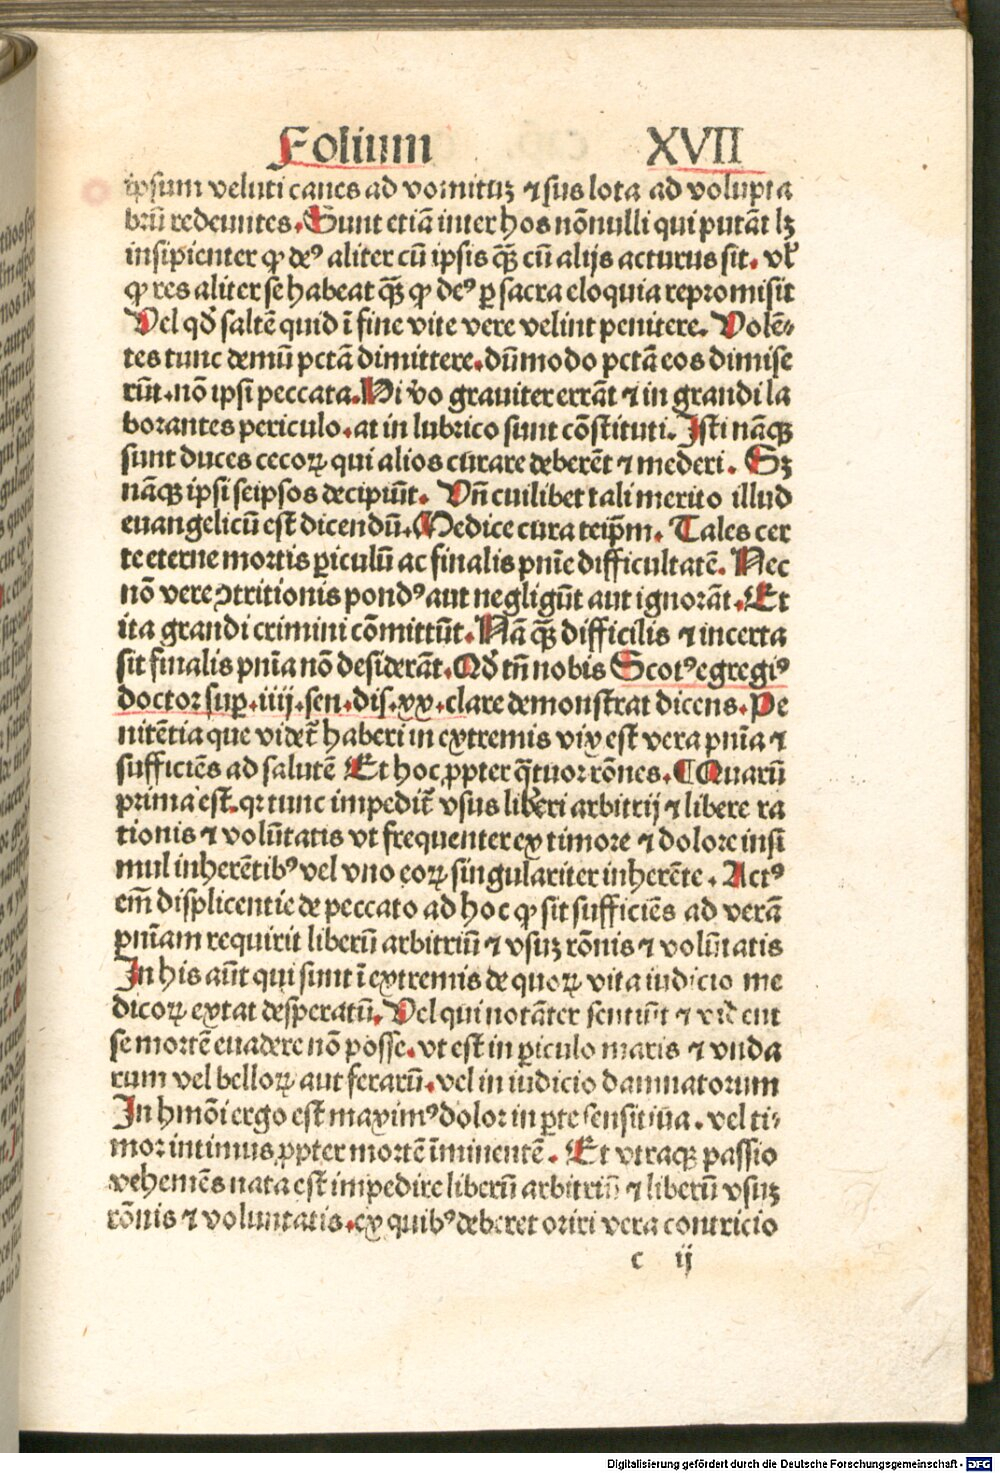 Folium XVII
ipsum veluti canes ad vomittuꝫ ⁊ sus lota ad volupta
brū redeuntes. Sunt etiā inter hos nōnulli qui putāt lꝫ
insipienter ꝙ deꝰ aliter cū ipsis qꝫ̄ cū alijs acturus sit. vl'
ꝙ res aliter se habeat qꝫ̄ ꝙ deꝰ ꝑ sacra eloquia repromisit
Vel qd' saltē quid ī fine vite vere velint penitere. Volē-
tes tunc demū pctā dimittere. dūmodo pctā eos dimise
rūt. nō ipsi peccata. Hi v̓o grauiter errāt ⁊ in grandi la
borantes periculo. at in lubrico sunt cōstituti. Isti nāqꝫ
sunt duces cecoꝝ qui alios curare deberēt ⁊ mederi. Sꝫ
nāqꝫ ipsi seipsos decipiūt. Vn̄ cuilibet tali merito illud
euangelicū est dicendū. Medice cura teip̄m. Tales cer
te eterne mortis ꝑiculū ac finalis pn̄ie difficultatē. Nec
nō vere ꝯtritionis pondꝰ aut negligūt aut ignorāt. Et
ita grandi crimini cōmittūt. Nā qꝫ̄ difficilis ⁊ incerta
sit finalis pn̄ia nō desiderāt. Qd' tn̄ nobis Scotꝰ egregiꝰ
doctor suꝑ. iiij. sen. dis. xx. clare demonstrat dicens. Pe
nitētia que videt̄ haberi in extremis vix est vera pn̄ia ⁊
sufficiēs ad salutē Et hoc ꝓpter q̄tuor rōnes. ¶ Quarū
prima est. qr tunc impedit̄ vsus liberi arbitrij ⁊ libere ra
tionis ⁊ volūtatis vt frequenter ex timore ⁊ dolore insi
mul inherētibꝰ vel vno eoꝝ singulariter inherēte. Actꝰ
em̄ displicentie de peccato ad hoc ꝙ sit sufficiēs ad verā
pn̄iam requirit liberū arbitriū ⁊ vsuꝫ rōnis ⁊ volūtatis
In his aūt qui sunt ī extremis de quoꝝ vita iudicio me
dicoꝝ extat desperatū. Vel qui notāter sentiūt ⁊ vident
se mortē euadere nō posse. vt est in ꝑiculo maris ⁊ vnda
rum vel belloꝝ aut ferarū. vel in iudicio damnatorum
In hmōi ergo est maximꝰ dolor in ꝑte sensitiua. vel ti-
mor intimus ꝓpter mortē īminentē. Et vtraqꝫ passio
vehemēs nata est impedire liberū arbitriū ⁊ liberū vsuꝫ
rōnis ⁊ voluntatis. ex quibꝰ deberet oriri vera contricio
c ij
Digitalisierung gefördert durch die Deutsche Forschungsgemeinschaft - DFG